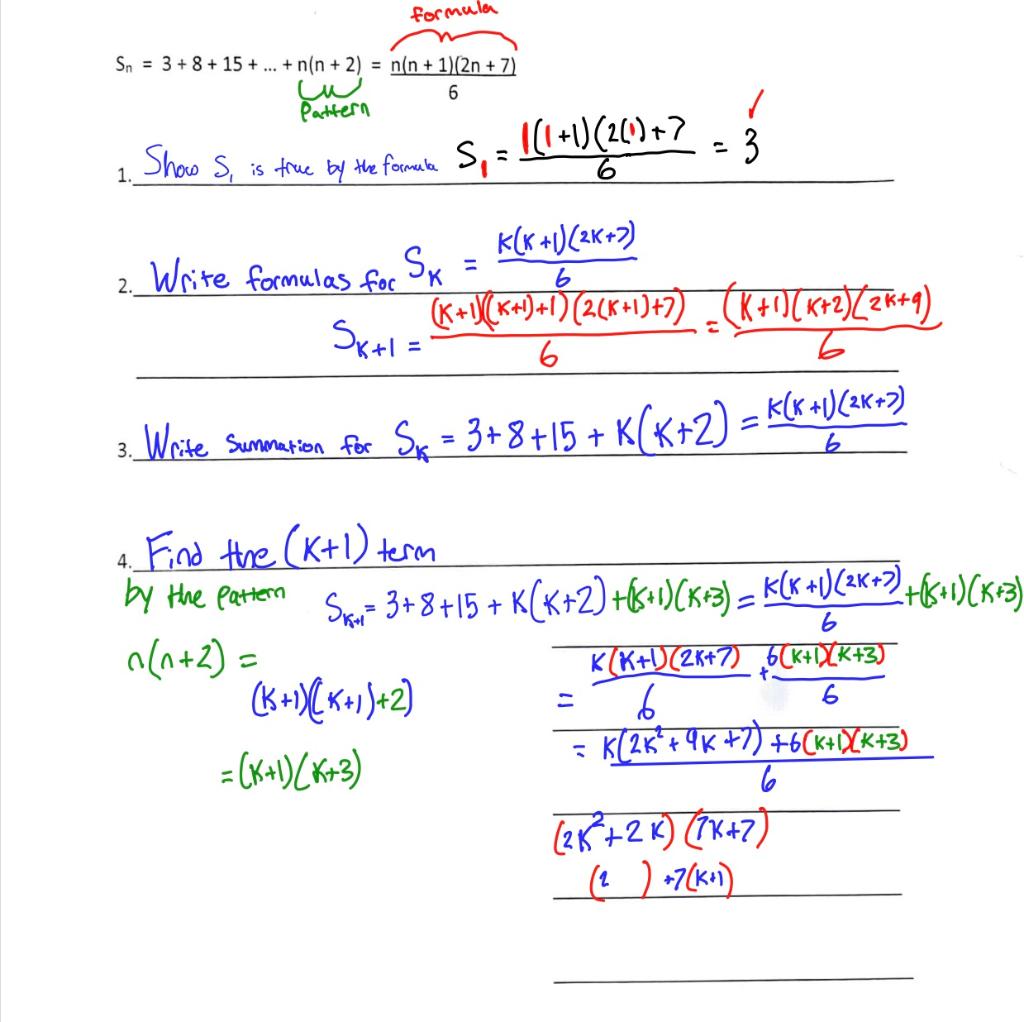 formula
Sₙ = 3 + 8 + 15 + ... + n(n + 2) = n(n + 1)(2n + 7)
6
Pattern
1. Show S₁ is true by the formula S₁ = 1(1+1)(2(1)+7 = 3 ✓
6
2. Write formulas for S_K = K(K+1)(2K+7)
6
S_K+1 = (K+1)((K+1)+1)(2(K+1)+7) = (K+1)(K+2)(2K+9)
6 6
3. Write Summation for S_K = 3+8+15+K(K+2) = K(K+1)(2K+7)
6
4. Find the (K+1) term
by the pattern S_K+1 = 3+8+15+K(K+2)+(K+1)(K+3) = K(K+1)(2K+7) +(K+1)(K+3)
6
n(n+2) = K(K+1)(2K+7) + 6(K+1)(K+3)
(K+1)((K+1)+2) = 6 6
= K(2K²+9K+7)+6(K+1)(K+3)
=(K+1)(K+3) 6
(2K²+2K)(7K+7)
(2 ) +7(K+1)